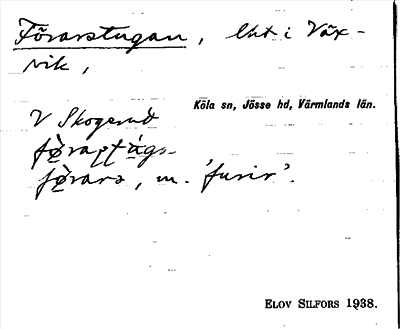 Förarstugan, lht i Väx-
vik,
Köla sn, Jösse hd, Värmlands län.
V Skogsrud
förarst
förars, m. 'furir'.
ELOV SILFORS 1938.